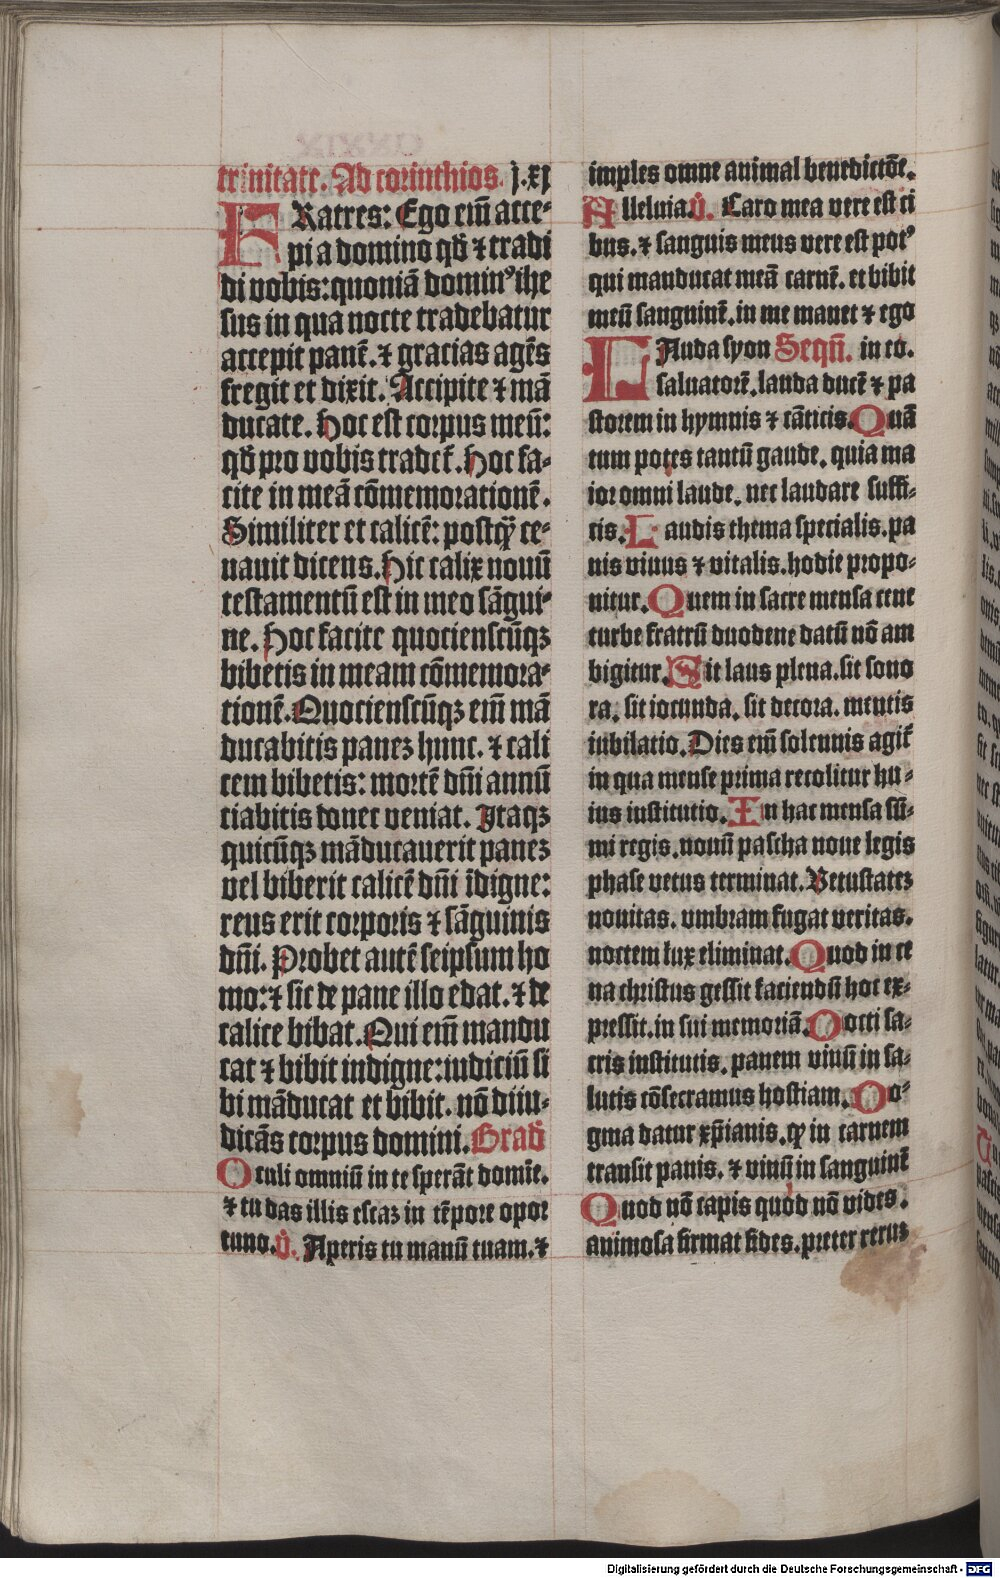 trinitate. Ad corinthios. j.xj
FRatres: Ego eim̄ acce-
pi a domino qđ ⁊ tradi
di vobis: quoniā domin⁹ ihe
sus in qua nocte tradebatur
accepit panē. ⁊ gracias agēs
fregit et dixit. Accipite ⁊ mā
ducate. Hoc est corpus meū:
qđ pro vobis tradet̄. Hoc fa-
cite in meā cōmemorationē.
Similiter et calicē: postq̄ ce-
nauit dicens. Hic calix nouū
testamentū est in meo sāgui-
ne. Hoc facite quociensčūqꝫ
bibetis in meam cōmemora-
tionē. Quocienscūqꝫ eim̄ mā
ducabitis paneꝫ hunc. ⁊ cali
cem bibetis: mortē dn̄i annū
ciabitis donec veniat. Itaqꝫ
quicūqꝫ māducauerit paneꝫ
vel biberit calicē dn̄i īdigne:
reus erit corporis ⁊ sāguinis
dn̄i. Probet autē seipsum ho
mo: ⁊ sic de pane illo edat. ⁊ de
calice bibat. Qui eim̄ mandu
cat ⁊ bibit indigne: iudiciū si
bi māducat et bibit. nō diiu-
dicās corpus domini. Grad̄
Oculi omniū in te sperāt domīe.
⁊ tu das illis escaꝫ in tēpore opor
tuno. v̊. Aperis tu manū tuam. ⁊
imples omne animal benedictōe.
Alleluia. v̊. Caro mea vere est ci
bus. ⁊ sanguis meus vere est pot⁹
qui manducat meā carnē. et bibit
meū sanguinē. in me manet ⁊ ego
LAuda syon Seqn̄. in eo.
saluatorē. lauda ducē ⁊ pa
storem in hymnis ⁊ cāticis. Quā
tum potes tantū gaude. quia ma
ior omni laude. nec laudare suffi-
cis. Laudis thema specialis. pa
nis viuus ⁊ vitalis. hodie propo-
nitur. Quem in sacre mensa cene
turbe fratrū duodene datū nō am
bigitur. Sit laus plena. sit sono
ra. sit iocunda. sit decora. mentis
iubilatio. Dies eim̄ solennis agit̄
in qua mense prima recolitur hu-
ius institutio. In hac mensa no
mi regis. nouū pascha noue legis
phase vetus terminat. Vetustateꝫ
nouitas. vmbram fugat veritas.
noctem lux eliminat. Quod in ce
na christus gessit faciendū hoc ex-
pressit. in sui memoriā. Docti sa-
cris institutis. panem vinū in sa-
lutis cōsecramus hostiam. Do-
gma datur xp̄ianis. ꝙ in carnem
transit panis. ⁊ vinū in sanguinē
Quod nō capis quod nō vides.
animosa firmat fides. preter reruꝫ
Digitalisierung gefördert durch die Deutsche Forschungsgemeinschaft - DFG